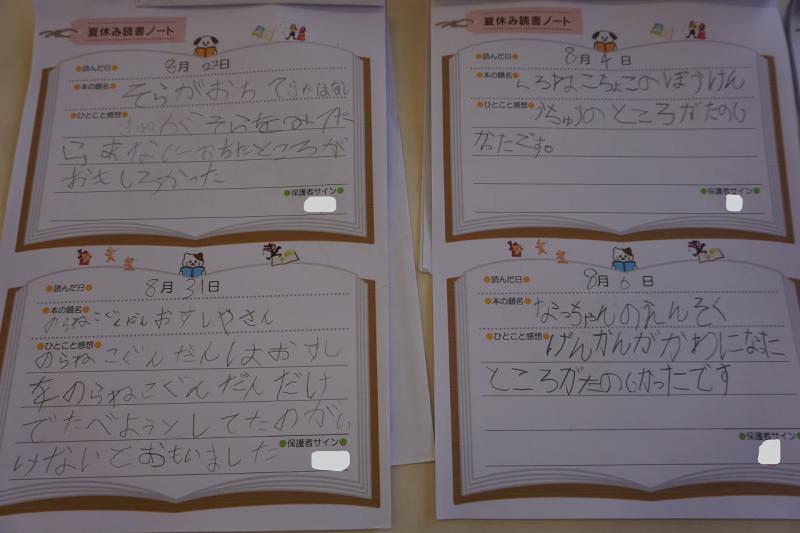 夏休み読書ノート
読んだ日 8月 22日
本の題名 そらがおちてきたはなし
ひとこと感想 がそらをみてた
らまなにおちたところが
おもしろかった
保護者サイン
読んだ日 8月 31日
本の題名 のらねこぐんだんおすしやさん
ひとこと感想 のらねこぐんだんはおすし
をのらねこぐんだんだけ
でたべようとしてたのがい
けないとおもいました
保護者サイン
夏休み読書ノート
読んだ日 8月 4日
本の題名 くろねこちょこのぼうけん
ひとこと感想 うちゅうのところがたのし
かたです。
保護者サイン
読んだ日 8月 6日
本の題名 なっちゃんのえんそく
ひとこと感想 げんかんがかわになった
ところがたのしかったです
保護者サイン